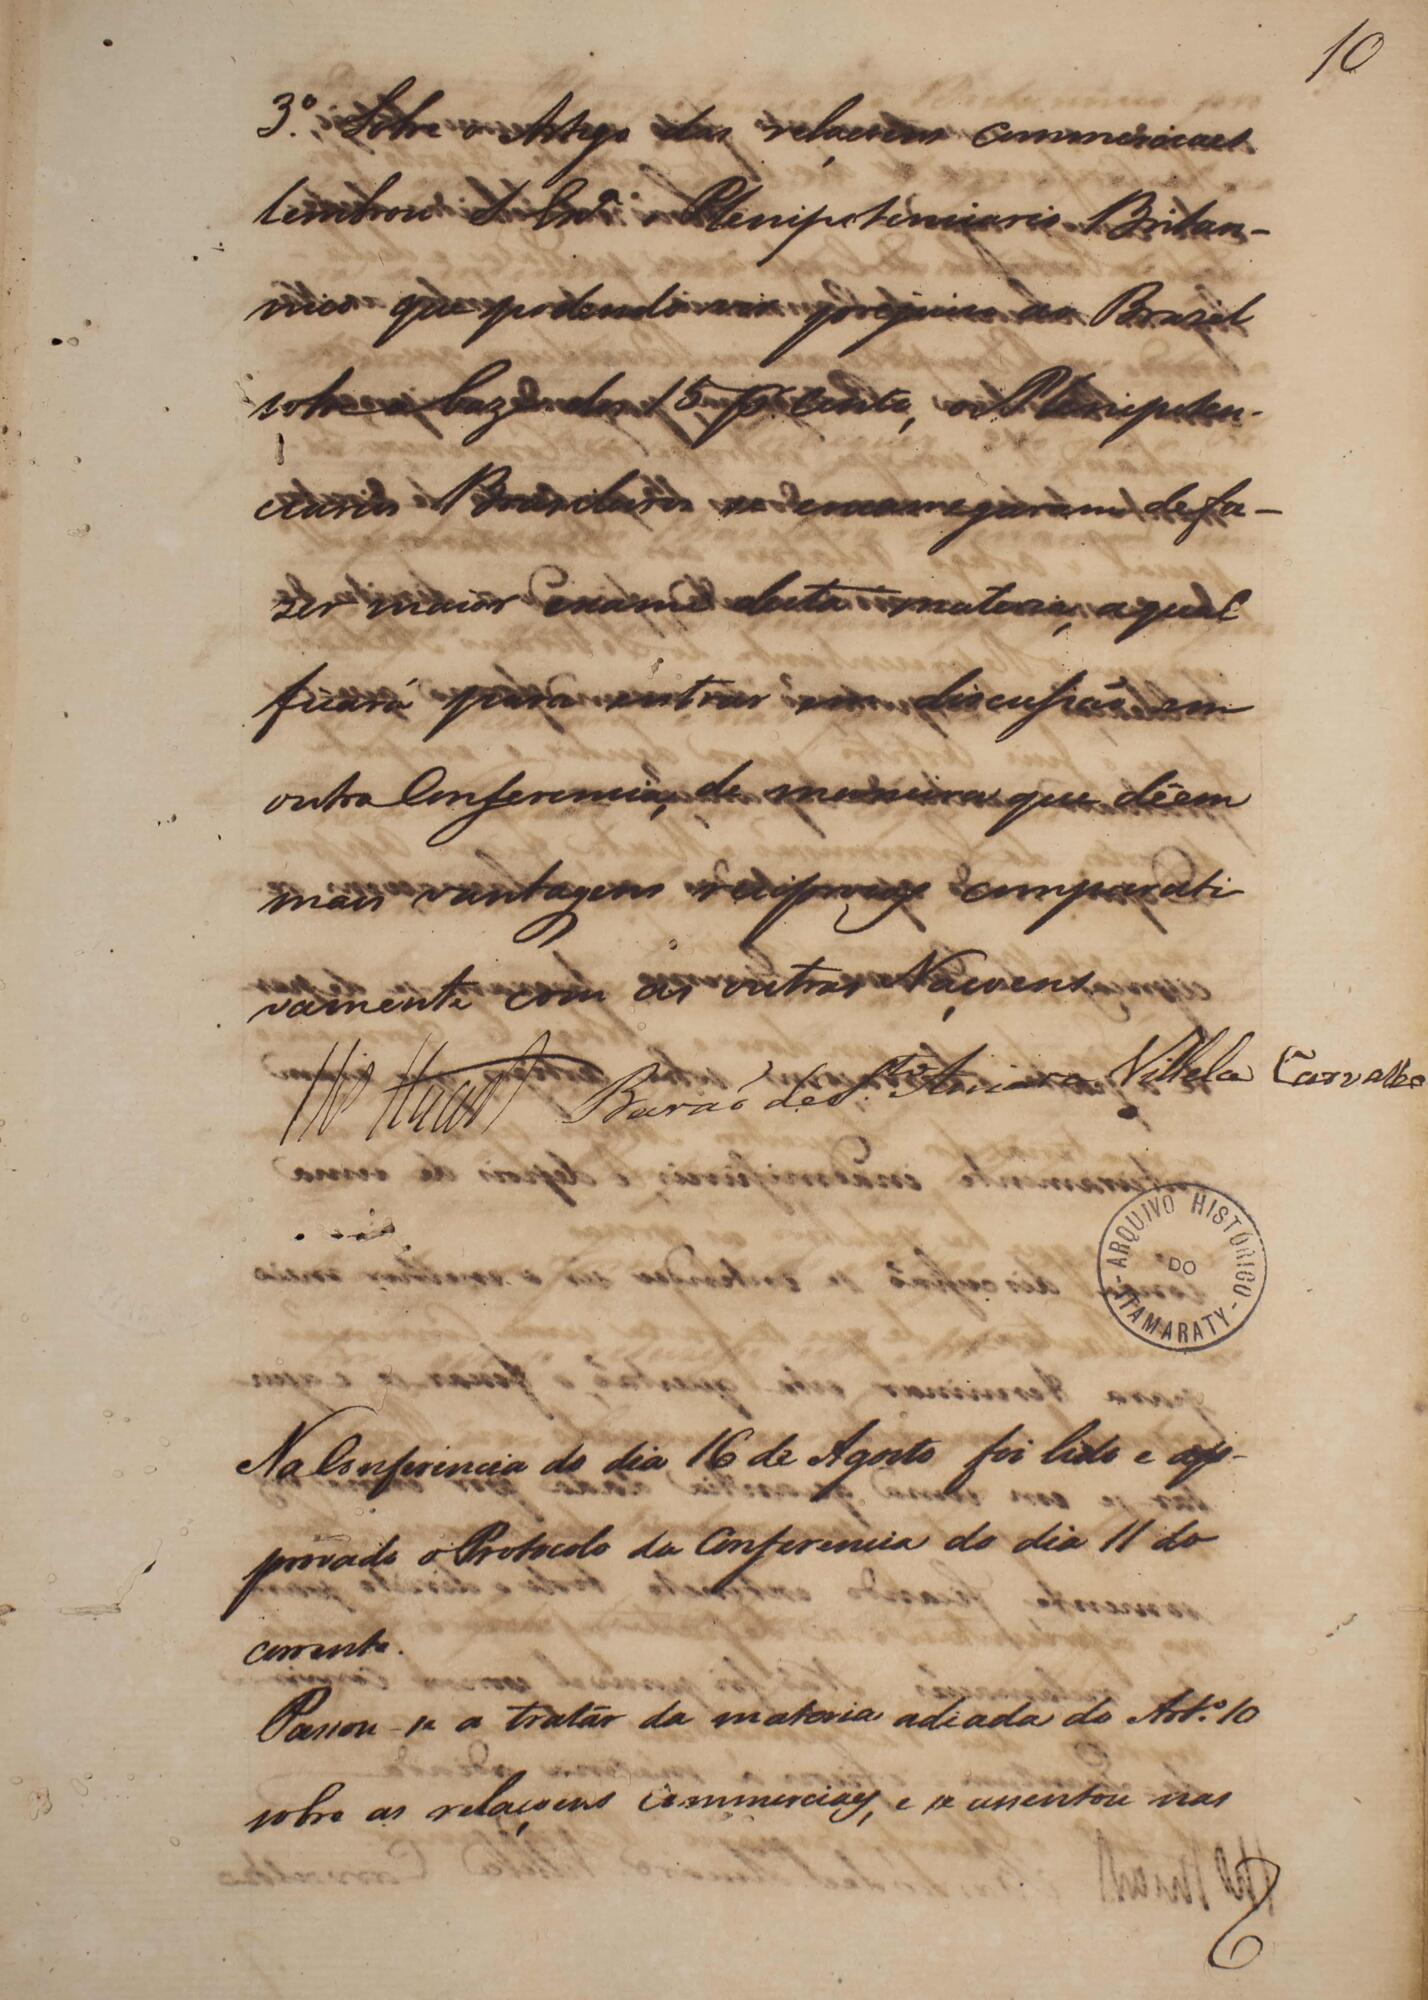 10
3.º Sobre o Artigo das relaçoens commerciaes
lembrou S. Ex.ª o Plenipotenciario Britan-
nico que podendo vir prejuizo ao Brazil
sobre a baze dos 15 p. Cento, os Plenipoten-
ciarios Brasileiros se encarregaram de fa-
zer maior exame desta materia, a qual
ficará para entrar em discussão em
outra Conferencia, de maneira que dêem
mais vantagens reciprocas comparati
vamente com as outras Naçoens
Barão de S.to Amaro Villela Carvalho
ARQUIVO HISTÓRICO DO ITAMARATY
Na Conferencia do dia 16 de Agosto foi lido e ap-
provado o Protocolo da Conferencia do dia 11 do
corrente.
Passou-se a tratar da materia adiada do Art.º 10
sobre as relaçoens commerciaes, e se assentou nas